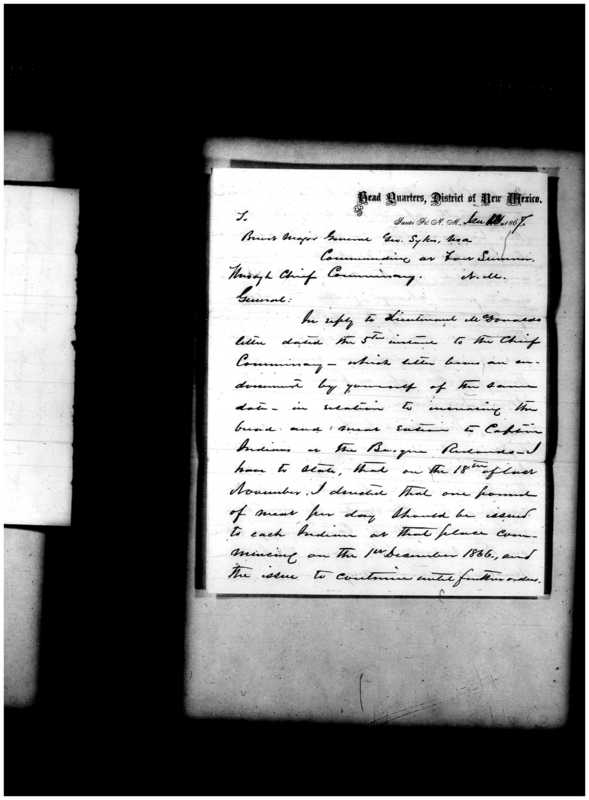 Head Quarters, District of New Mexico.
Santa Fé, N. M., Jan 1867.
To
Brevt Major General Geo. Sykes, USA
Commanding at Fort Sumner,
Through Chief Commissary. N. M.
General:
In reply to Lieutenant McDonalds
letter dated the 5th instant to the Chief
Commissary — which letter bears an en-
dorsement by yourself of the same
date — in relation to increasing the
bread and meat rations to Captive
Indians at the Bosque Redondo — I
have to state, that on the 18th of last
November, I directed that one pound
of meat per day should be issued
to each Indian at that place com-
mencing on the 1st December 1866, and
the issue to continue until further orders.